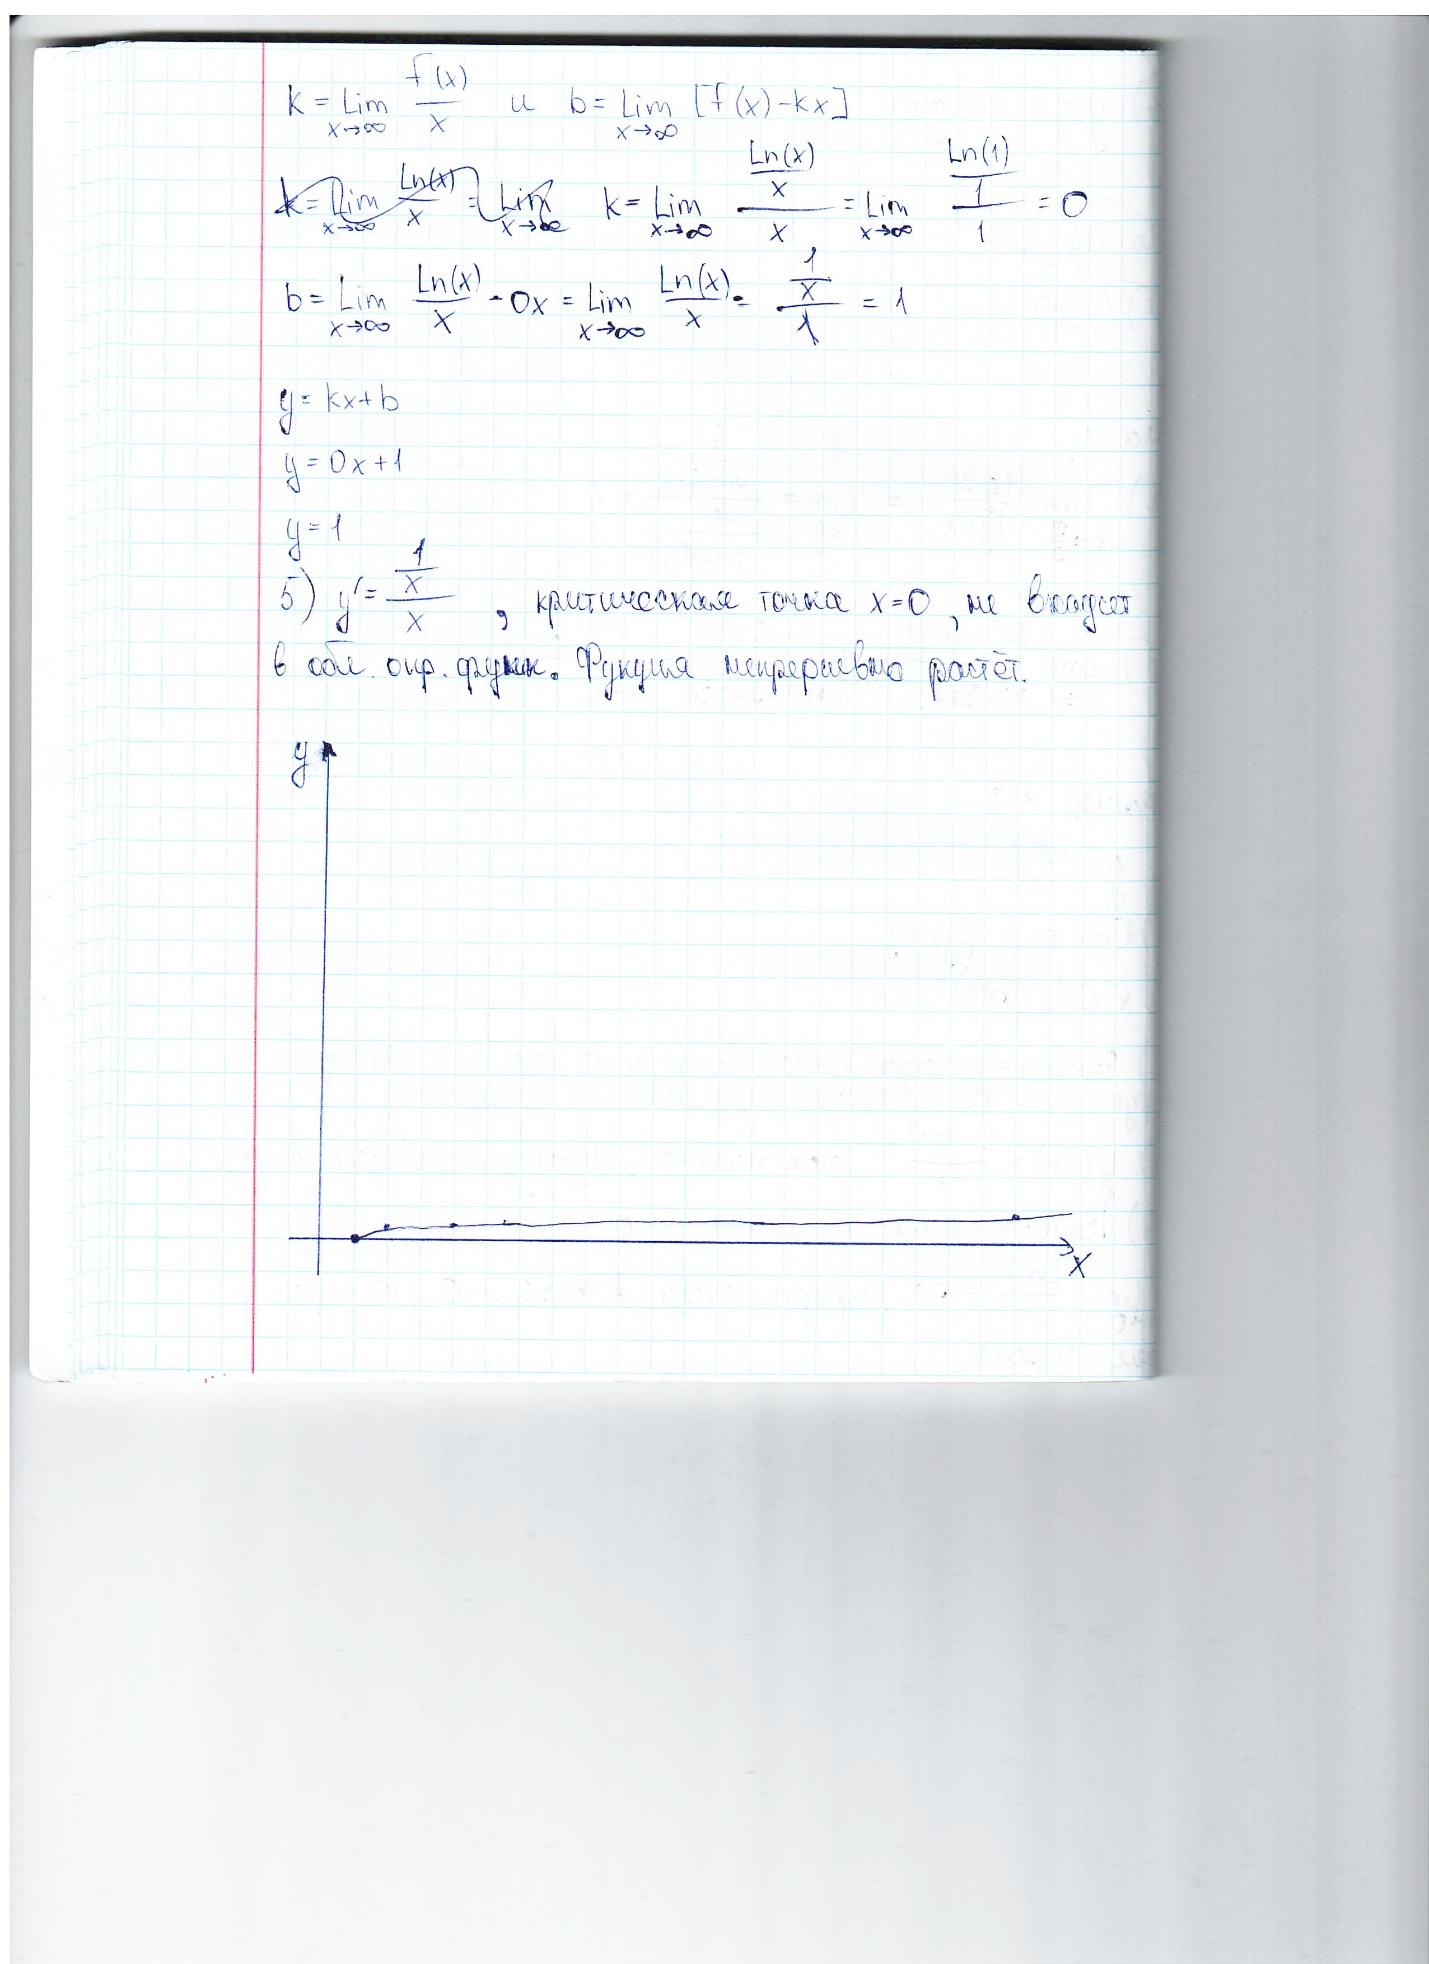 k = Lim x→∞ f(x)/x и b = Lim x→∞ [f(x)-kx]
k = Lim x→∞ Ln(x)/x = Lim x→∞ k = Lim x→∞ (Ln(x)/x)/x = Lim x→∞ (Ln(1)/1)/1 = 0
b = Lim x→∞ Ln(x)/x - 0x = Lim x→∞ Ln(x)/x = (1/x)/1 = 1
y = kx+b
y = 0x+1
y = 1
5) y' = (1/x)/x , критическая точка x=0, не входит
в обл. опр. функ. Фукция непрерывно растёт.
y
x